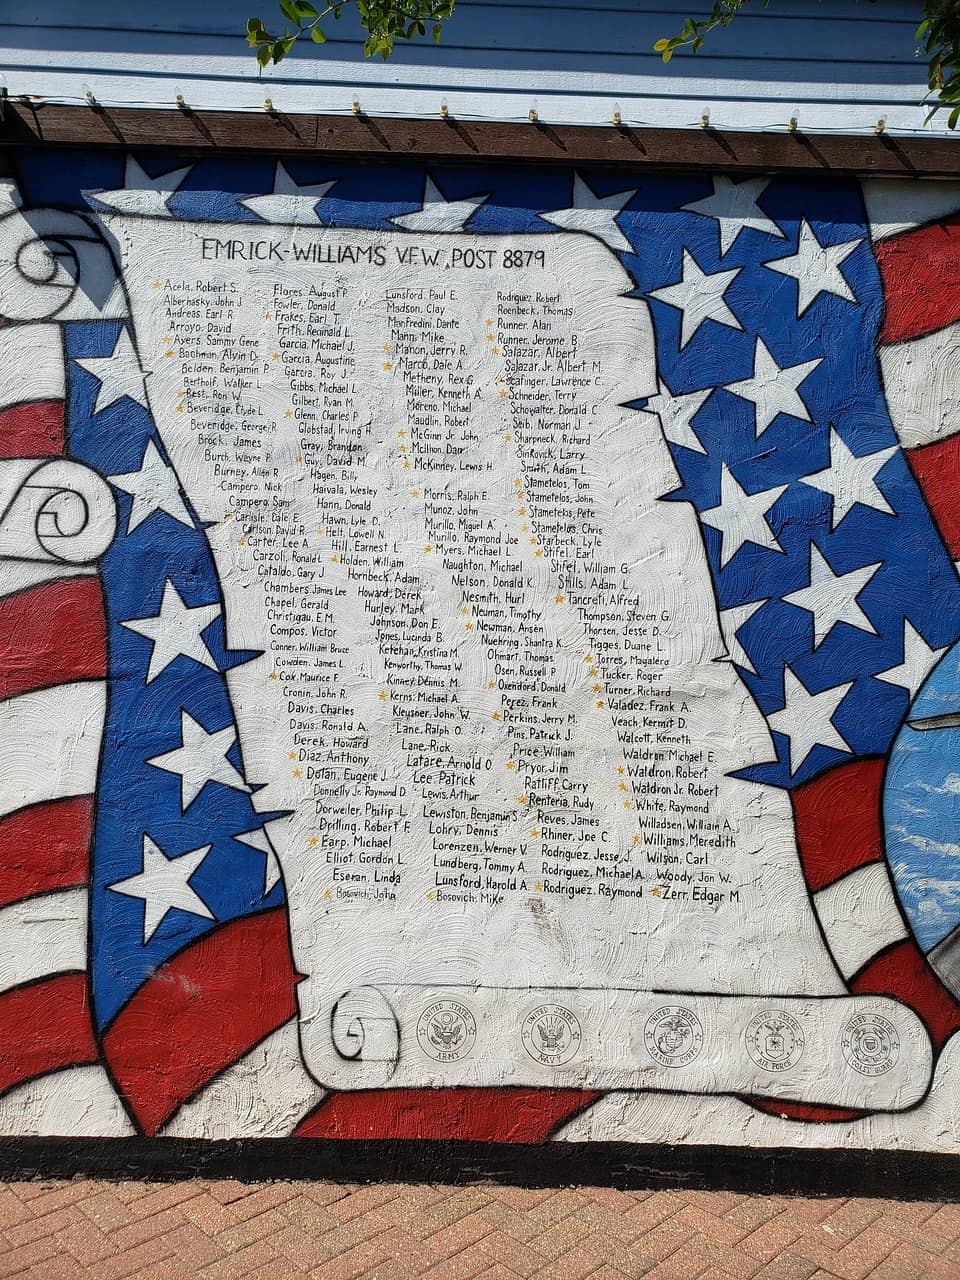 EMRICK-WILLIAMS V.F.W. POST 8879
Acela, Robert S.
Alberhasky, John J.
Andreas, Earl R.
Arroyo, David
Ayers, Sammy Gene
Bachman, Alvin D.
Belden, Benjamin P.
Bertholf, Walker L.
Best, Ron W.
Beveridge, Clyde L.
Beveridge, George R.
Brock, James
Burch, Wayne P.
Burney, Allen R.
Campero, Nick
Campero, Sam
Carlisle, Dale E.
Carlson, David R.
Carter, Lee A.
Carzoli, Ronald L.
Cataldo, Gary J.
Chambers, James Lee
Chapel, Gerald
Christigau, E.M.
Compos, Victor
Conner, William Bruce
Cowden, James L.
Cox, Maurice F.
Cronin, John R.
Davis, Charles
Davis, Ronald A.
Derek, Howard
Diaz, Anthony
Dolan, Eugene J.
Donnelly Jr, Raymond D.
Dorweiler, Philip L.
Drilling, Robert F.
Earp, Michael
Elliot, Gordon L.
Eseran, Linda
Bosovich, John
Flores, August P.
Fowler, Donald
Frakes, Earl T.
Frith, Reginald L.
Garcia, Michael J.
Garcia, Augustine
Garcia, Roy J.
Gibbs, Michael L.
Gilbert, Ryan M.
Glenn, Charles P.
Globstad, Irving H.
Gray, Brandon
Guy, David M.
Hagen, Billy
Haivala, Wesley
Hann, Donald
Hawn, Lyle D.
Helt, Lowell N.
Hill, Earnest L.
Holden, William
Hornbeck, Adam
Howard, Derek
Hurley, Mark
Johnson, Don E.
Jones, Lucinda B.
Ketchan, Kristina M.
Kenworthy, Thomas W.
Kinney, Dennis M.
Kerns, Michael A.
Kleysner, John W.
Lane, Ralph O.
Lane, Rick
Latare, Arnold O.
Lee, Patrick
Lewis, Arthur
Lewiston, Benjamin S.
Lohry, Dennis
Lorenzen, Werner V.
Lundberg, Tommy A.
Lunsford, Harold A.
Bosovich, Mike
Lunsford, Paul E.
Madson, Clay
Manfredini, Dante
Mann, Mike
Manon, Jerry R.
Marco, Dale A.
Metheny, Rex G.
Miller, Kenneth A.
Moreno, Michael
Maudlin, Robert
McGinn Jr. John
McIllion, Darr
McKinney, Lewis H.
Morris, Ralph E.
Munoz, John
Murillo, Miguel A.
Murillo, Raymond Joe
Myers, Michael L.
Naughton, Michael
Nelson, Donald K.
Nesmith, Hurl
Neuman, Timothy
Newman, Ansen
Nuehring, Shantra K.
Ohmart, Thomas
Osen, Russell P.
Oxenford, Donald
Perez, Frank
Perkins, Jerry M.
Pins, Patrick J.
Price, William
Pryor, Jim
Ratliff, Carry
Renteria, Rudy
Reves, James
Rhiner, Joe C.
Rodriguez, Jesse J.
Rodriguez, Michael A.
Rodriguez, Raymond
Rodriguez, Robert
Roenbeck, Thomas
Runner, Alan
Runner, Jerome B.
Salazar, Albert
Salazar, Jr. Albert M.
Scafinger, Lawrence C.
Schneider, Terry
Schowalter, Donald C.
Seib, Norman J.
Sharpneck, Richard
Sinkovick, Larry
Smith, Adam L.
Stametelos, Tom
Stametelos, John
Stametelos, Pete
Stametelos, Chris
Starbeck, Lyle
Stifel, Earl
Stifel, William G.
Stills, Adam L.
Tancreti, Alfred
Thompson, Steven G.
Thorsen, Jesse D.
Tigges, Duane L.
Torres, Magalere
Tucker, Roger
Turner, Richard
Valadez, Frank A.
Veach, Kermit D.
Walcott, Kenneth
Waldron, Michael E.
Waldron, Robert
Waldron Jr. Robert
White, Raymond
Willadsen, William A.
Williams, Meredith
Wilson, Carl
Woody, Jon W.
Zerr, Edgar M.
UNITED STATES ARMY
UNITED STATES NAVY
UNITED STATES MARINE CORPS
UNITED STATES AIR FORCE
UNITED STATES COAST GUARD